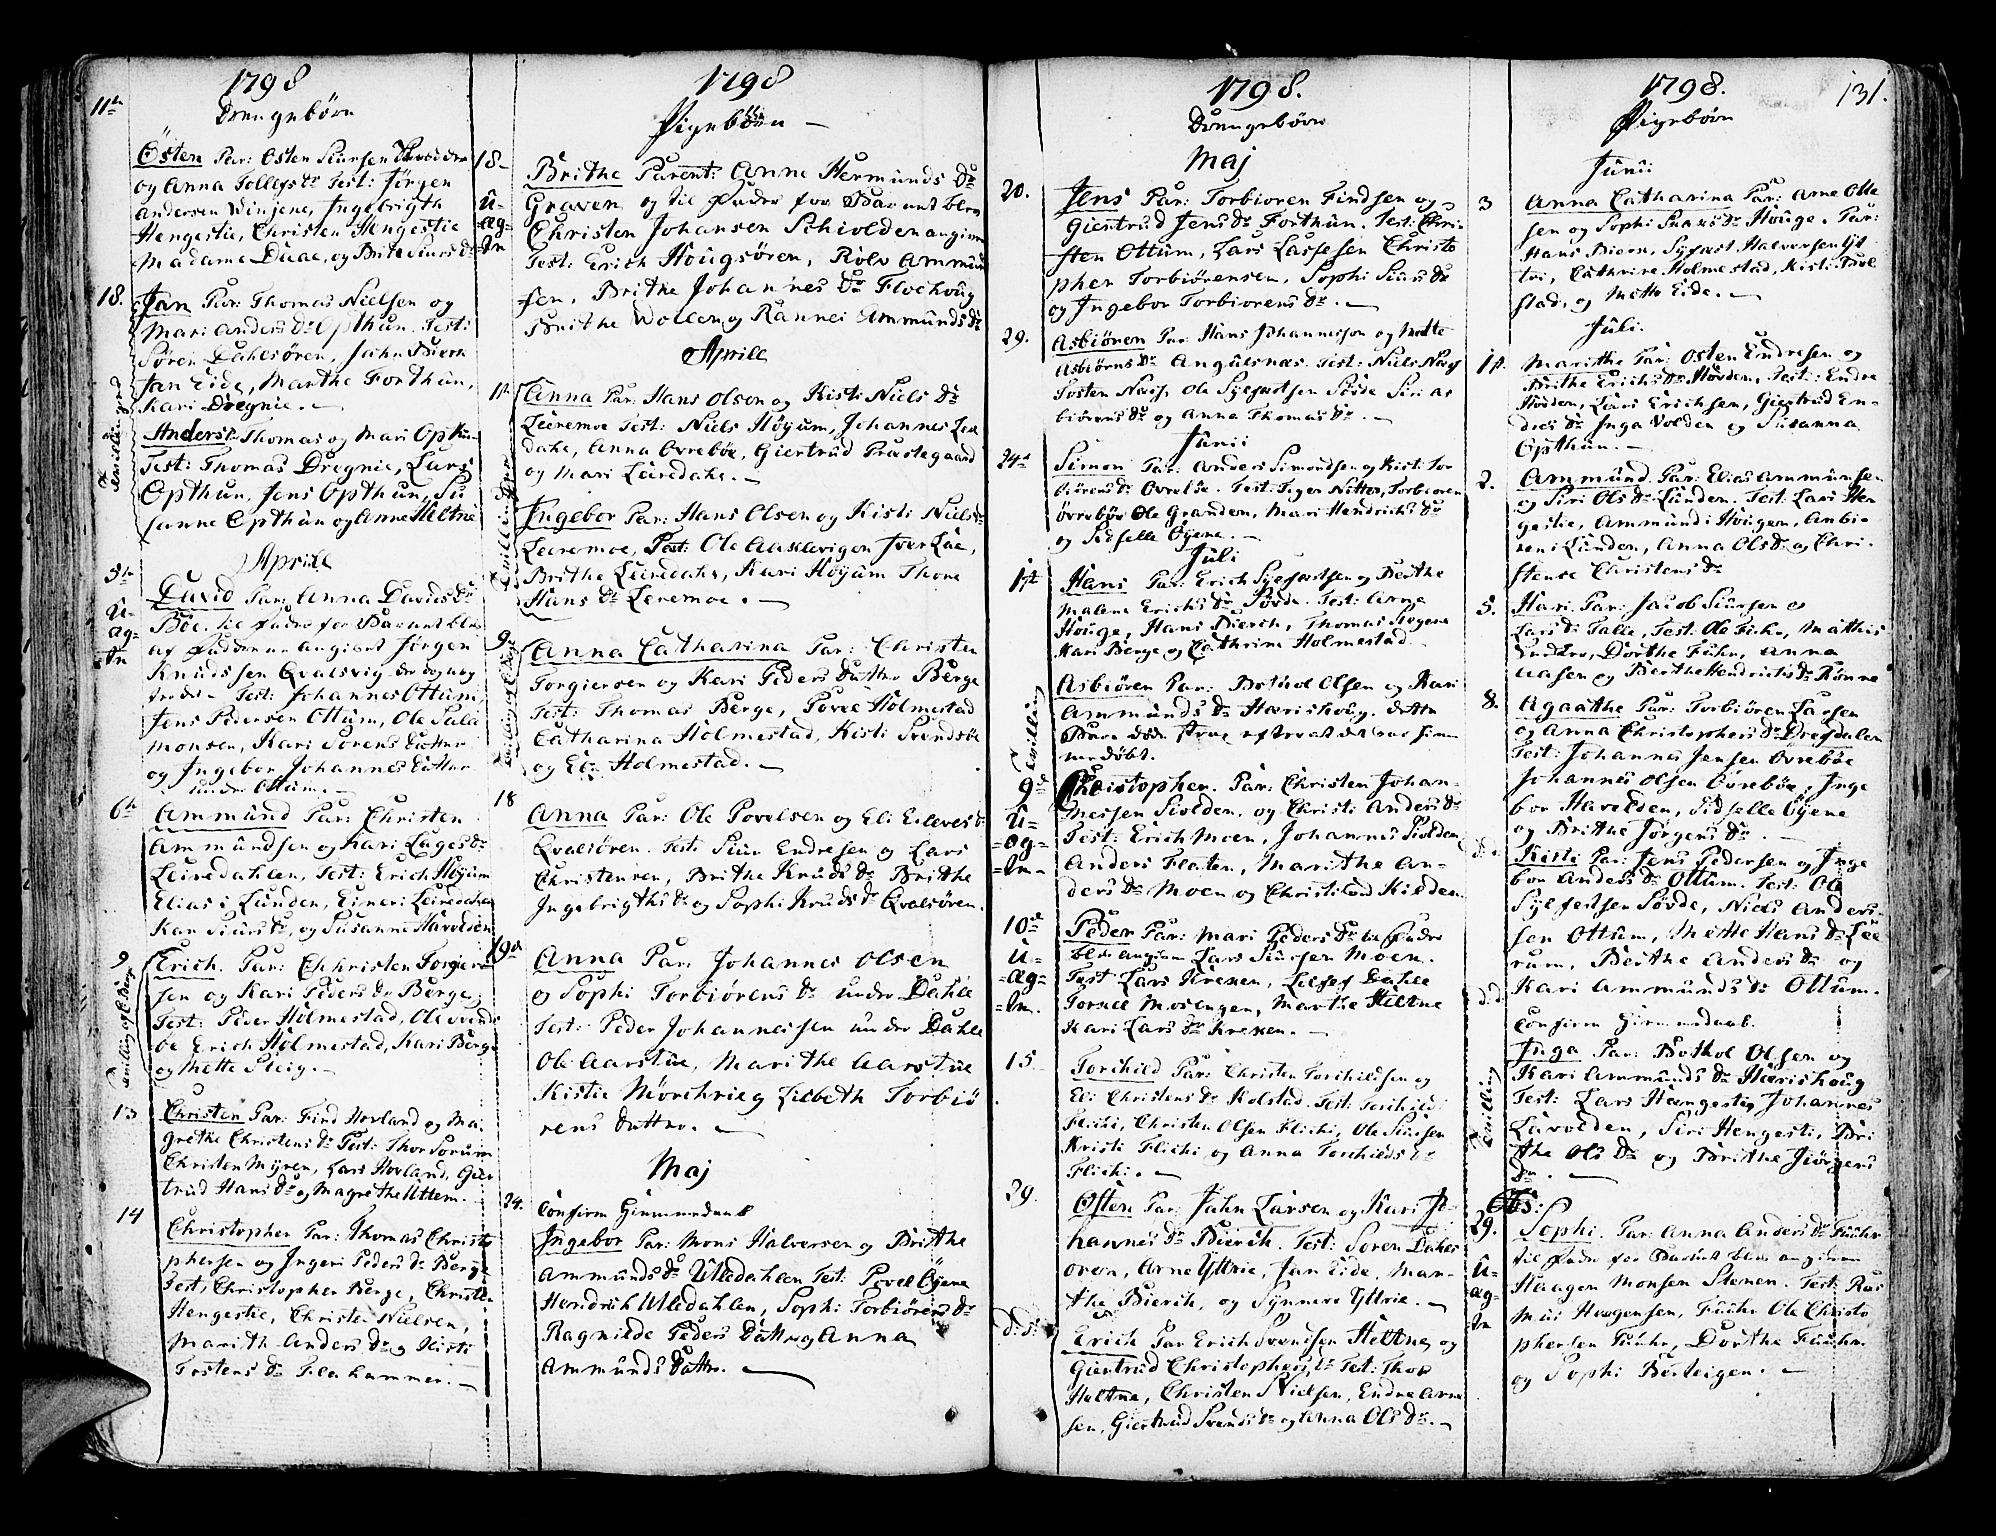 1798
Drengebörn
11te
Östen Par: Osten Siursen
og Anna Tollefs Dr Test: Jørgen
Andersen Winjene, Ingebrigth
Hengestie, Christen Hengestie
Madame Daae, og Brite Siurs Dr
18. Jan Par: Thomas Nielsen og
Mari Anders Dr Opthun. Test:
Søren Dahlsören, Jahn Bierk
Jan Eide, Marthe Forthun,
Kari Dregnie.
Anders Thomas og Mari Opthun
Test: Thomas Dregnie, Lars
Opthun, Jens Opthun, Su
sanne Opthun og Anne Heltne
Aprill
5te David Par: Anna Davids Dr
Böe. til Fader for Barnet blev
af Faderen angivet Jørgen
Knudssen Qvalsvig
Test: Johannes Ottum
Jens Pedersen Ottum, Ole Sala
monsen, Kari Sörens Datter
og Ingebor Johannes Datter
Ottum.
6te Ammund Par: Christen
Ammundsen og Kari Lages Dr
Leiredahlen, Test: Erich Höyum
Elias i Lunden, Einer i Leiredahlen
Kari Siurs Dr, og Susanna Harolden
9 Erich. Par: Christen Torgier
sen og Kari Peders Dr Berge
Test: Peder Holmestad, Ole Svends
öe Erich Holmestad, Kari Berge
og Mette Steig.
13 Christen Par: Find Hovland og Ma
grethe Christens Dr Test: Thor Sorum
Christen Myren, Lars Hovland, Gier
trud Hans Dr og Magrethe Uttem.
14
Christopher Par: Thomas Christo
phersen og Ingeri Peders Dr Berge
Test, Christopher Berge, Christen
Hengestie, Christen Nielsen,
Marith Anders Dr og Kisti
Tostens Dr Flahammer.
1798
Pigebörn
18
U-
æg-
te
Brithe Parent: Anne Hermunds Dr
Graven og til Fader for Barnet blev
Christen Johansen Schiolden angiven
Test: Erich Hougsören, Rolv Ammun
sen, Brithe Johannes Dr Flochoug
Brithe Wollen og Rannei Ammunds Dr
Aprill
1te Anna Par: Hans Olsen og Kisti Niels Dr
Leiremoe Test: Niels Höyum, Johannes Lei
dahl, Anna Ovrebøe, Giertrud Præstegaard
og Mari Leiredahl.
Ingebor Par: Hans Olsen og Kisti Niels Dr
Leiremoe, Test: Ole Aaselvigen Iver Lie,
Brithe Leiredahl, Kari Höyum Thore
Hans Dr Leremoe.
9. Anna Catharina Par: Christen
Torgiersen og Kari Peders Datter Berge
Test: Thomas Berge, Povel Holmestad
Catharina Holmestad, Kisti Svendsöe
og Eli Holmestad.
18
Anna Par: Ole Povelsen og Eli Eilevs Dr
Qvalsören. Test: Siur Endresen og Lars
Christensen, Brithe Knuds Dr Brithe
Ingebrigths Dr og Sophi Knuds Dr Qvalsören.
19de
Anna Par. Johannes Olsen
og Sophi Torbiörens Dr under Dahle
Test: Peder Johannessen under Dahle
Ole Aarstue, Marithe Aarstue
Kistie Mörchrie g Lisbeth Torbiö
rens Datter.
Maj
24. Confirm Hiemmedaab
Ingebor Par: Mons Halversen og Brithe
Ammunds Dr Ulledahlen Test: Povel Öyene
Hendrich Ulledahlen, Sophi Torbiörens Dr
Ragnilde Peders Datter og Anna
Ammunds Datter.
1798.
Drengebörn
Maj
20. Jens Par: Torbioren Findsen og
Giertrud Jens Dr Forthun. Test: Chri-
sten Ottum, Lars Lassesen Christo
pher Torbiörensen, Sophi Siurs Dr
og Ingebor Torbiorens Dr.
29. Asbiören Par: Hans Johannessen og Mette
Asbiörns Dr Angulsnæs. Test: Niels Næs
Tosten Næss, Ole Sylfestsen Sövde Siri As
biörens Dr og Anna Thomas Dr.
Junii
24de Simon Par: Anders Simondsen og Kisti Tor
biörens Dr Ovreböe. Test: Inger Nitter, Torbioren
övreböe Ole Granden, Mari Hendrichs Dr
og Sidselle Öyene.
Juli
1te Hans Par: Erich Sylfestsen og Berthe
Malene Erichs Dr Sövde. Test: Arne
Houge, Hans Bierch, Thomas Moyene
Kari Berge og Cathrine Holmestad
Asbiören Par: Bothol Olsen og Kari
Ammunds Dr Hærishoug. dette
Barn døde strax efter at det var hiem
medøbt.
9de
U-
æg-
te
Christopher. Par: Christen Johan-
nessen Siolden, og Christi Anders Dr
Test: Erich Moen, Johannes Siolden
Anders Flaten, Marithe An-
ders Dr Moen og Christi Lad Kilden
10de
U-
æg-
te
Peder Par: Mari Peders Dr til Fader
blev angiven Lars Siursen Moen.
Test Lars Krexen, Lilsef Dahle
Tornel Mosengen, Marthe Heltne
Kari Lars Dr Krexen.
15 Torchild Par: Christen Torchildsen og
Eli Christens Dr Kolstad. Test: Torchild
Flichi, Christen Olsen Flichi, Ole Siursen
Kristi Flichi og Anna Torchilds Dr
Flichi.
29. Osten Par: Jahn Larsen og Kari Jo-
hannes Dr Bierch. Test: Soren Dahls
oren, Arne Yttrie, Jan Eide, Mar-
the Bierch, og Synneve Yttrie.
d: d: Erich Par Erich Svendsen Heltne og
Giertrud Christophers Dr Test: Thor
Heltne, Christen Nielsen, Endre Arne
sen, Giertrud Svends Dr og Anna Ols Dr.
1798.
131.
Pigebörn
Junii
3 Anna Catharina Par: Arne Olle
sen og Sophi Dr Houge. Par:
Hans Bierch, Sylfest Halversen Yt
tri, Cathrine Holmestad, Kisti Bol
stad, og Mette Eide.
Juli.
1te. Marithe Par: Osten Endresen og
Brithe Erichs Dr Hövden, Test: Endre
Hövden, Lars Erichsen, Giertrud En-
dres Dr Inga Volden og Susanna
Opthun.
2. Ammund Par: Elias Ammunsen
og Siri Ols Dr Lunden. Test: Lars Hen
gestie, Ammund i Hougen, Anbi-
ren i Lunden, Anna Ols Dr og Chri-
stense Christens Dr
5. Kari. Par: Jacob Siursen og
Lars Dr Talle, Test: Ole Fuhr, Mathis
Endre, Dorthe Fuhr, Anna
Aasen og Berthe Hendrichs Dr Rönne
8. Agaathe Par: Torbiören Larsen
og Anna Christophers Dr Dregdalen
Test: Johannes Jensen Ovreböe
Johannes Olsen Övreböe, Inge
bor Harolden, Sidselle Öyene
og Brithe Jörgens Dr.
d: d. Kisti Par: Jens Pedersen og Inge
bor Anders Dr Ottum. Test: Ole
Sylfestsen Sövde, Niels Anders-
sen Ottum, Mette Hans Dr Lee
rum, Berthe Anders Dr og
Kari Ammunds Dr Ottum.
d: d. Confirm Hiemmedaab.
Inga Par: Bothol Olsen og
Kari Ammunds Dr Hærishoug
Test: Lars Hængestig Johannes
Leivolden, Siri Hengesti, Bri
the Ols Dr og Brithe Jörgens
Dr.
Obs:
29.
U-
æg-
te
Sophi. Par: Anna Anders Dr Fuuhr
til Fader for Barnet blev angiven
Haagen Monsen Stenen. Test: Ras
mus Haagensen, Fuuhr Ole Christo
phersen Fuuhr, Dorthe Fuuhr
og Sophi Berteigen.